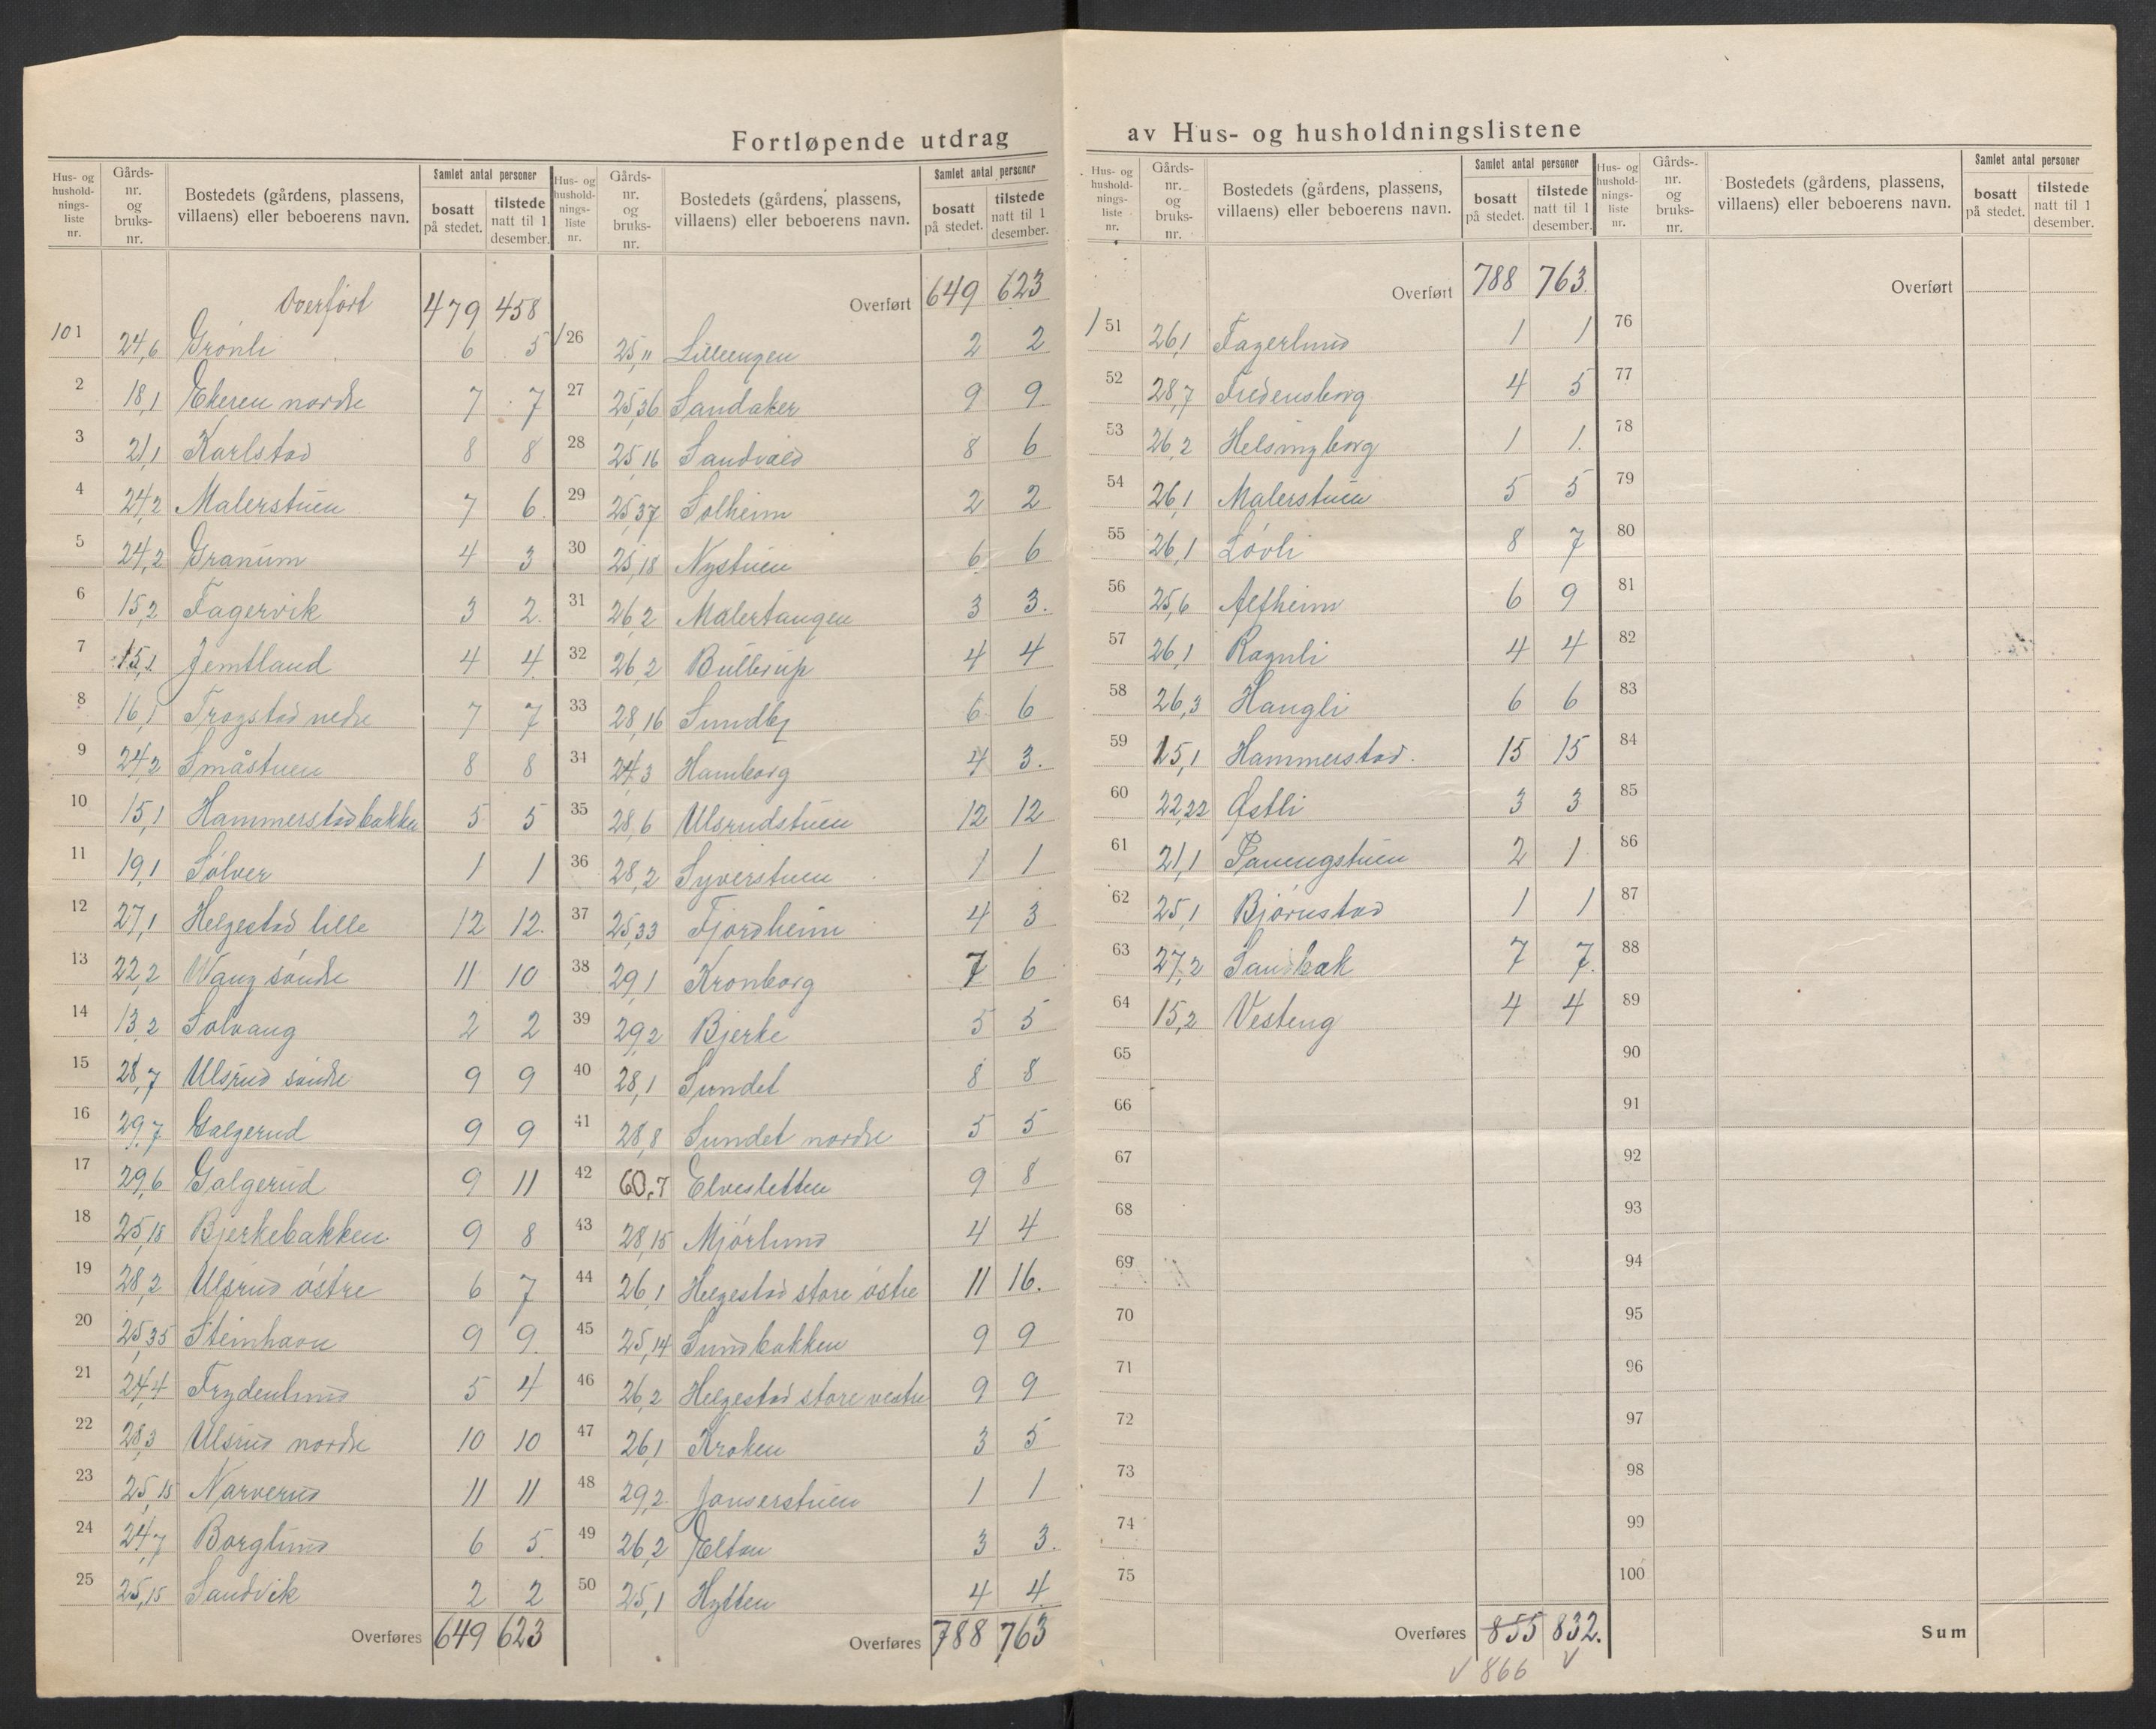 Fortløpende utdrag av Hus- og husholdningslistene
Hus- og hushold-nings-liste nr. Gårds-nr. og bruks-nr. Bostedets (gårdens, plassens, villaens) eller beboerens navn. Samlet antal personer bosatt på stedet. tilstede natt til 1 desember.
Overført 479 458
101 24,6 Grønli 6 5
2 18,1 Ekeren nordre 7 7
3 21,1 Karlstad 8 8
4 24,2 Malerstuen 7 6
5 24,2 Granum 4 3
6 15,2 Fagervik 3 2
7 15,1 Jemtland 4 4
8 16,1 Trogstad nedre 7 7
9 24,2 Småstuen 8 8
10 15,1 Hammerstadbakken 5 5
11 19,1 Sølver 1 1
12 27,1 Helgestad lille 12 12
13 22,2 Wang søndre 11 10
14 13,2 Solvang 2 2
15 28,7 Ulsrud søndre 9 9
16 29,7 Galgerud 9 9
17 29,6 Galgerud 9 11
18 25,18 Bjerkebakken 9 8
19 28,2 Ulsrud østre 6 7
20 25,35 Steinhavn 9 9
21 24,4 Frydenlund 5 4
22 28,3 Ulsrud nordre 10 10
23 25,15 Narverud 11 11
24 24,7 Borglund 6 5
25 25,15 Sandvik 2 2
Overføres 649 623
Hus- og hushold-nings-liste nr. Gårds-nr. og bruks-nr. Bostedets (gårdens, plassens, villaens) eller beboerens navn. Samlet antal personer bosatt på stedet. tilstede natt til 1 desember.
Overført 649 623
126 25,11 Lilleengen 2 2
27 25,36 Sandaker 9 9
28 25,16 Sandvold 8 6
29 25,37 Solheim 2 2
30 25,18 Nystuen 6 6
31 26,2 Malertangen 3 3
32 26,2 Bullerup 4 4
33 28,16 Sundby 6 6
34 24,3 Hamborg 4 3
35 28,6 Ulsrudstuen 12 12
36 28,2 Syverstuen 1 1
37 25,33 Fjordheim 4 3
38 29,1 Kronborg 7 6
39 29,2 Bjerke 5 5
40 28,1 Sundet 8 8
41 28,8 Sundet nordre 5 5
42 60,7 Elvesletten 9 8
43 28,15 Mjørlund 4 4
44 26,1 Helgestad store østre 11 16
45 25,14 Sundbakken 9 9
46 26,2 Helgestad store vestre 9 9
47 26,1 Kroken 3 5
48 29,2 Janserstuen 1 1
49 26,2 Elton 3 3
50 25,1 Hytten 4 4
Overføres 788 763
Hus- og hushold-nings-liste nr. Gårds-nr. og bruks-nr. Bostedets (gårdens, plassens, villaens) eller beboerens navn. Samlet antal personer bosatt på stedet. tilstede natt til 1 desember.
Overført 788 763
151 26,1 Fagerlund 1 1
52 28,7 Fredensborg 4 5
53 26,2 Helsingborg 1 1
54 26,1 Malerstuen 5 5
55 26,1 Løvli 8 7
56 25,6 Alfheim 6 9
57 26,1 Ragnli 4 4
58 26,3 Haugli 6 6
59 15,1 Hammerstad 15 15
60 22,22 Østli 3 3
61 21,1 2 1
62 25,1 Bjørnstad 1 1
63 27,2 Sandbak 7 7
64 15,2 Vesteng 4 4
65
66
67
68
69
70
71
72
73
74
75
Overføres 855 832
√ 866 √
Hus- og hushold-nings-liste nr. Gårds-nr. og bruks-nr. Bostedets (gårdens, plassens, villaens) eller beboerens navn. Samlet antal personer bosatt på stedet. tilstede natt til 1 desember.
Overført
76
77
78
79
80
81
82
83
84
85
86
87
88
89
90
91
92
93
94
95
96
97
98
99
100
Sum